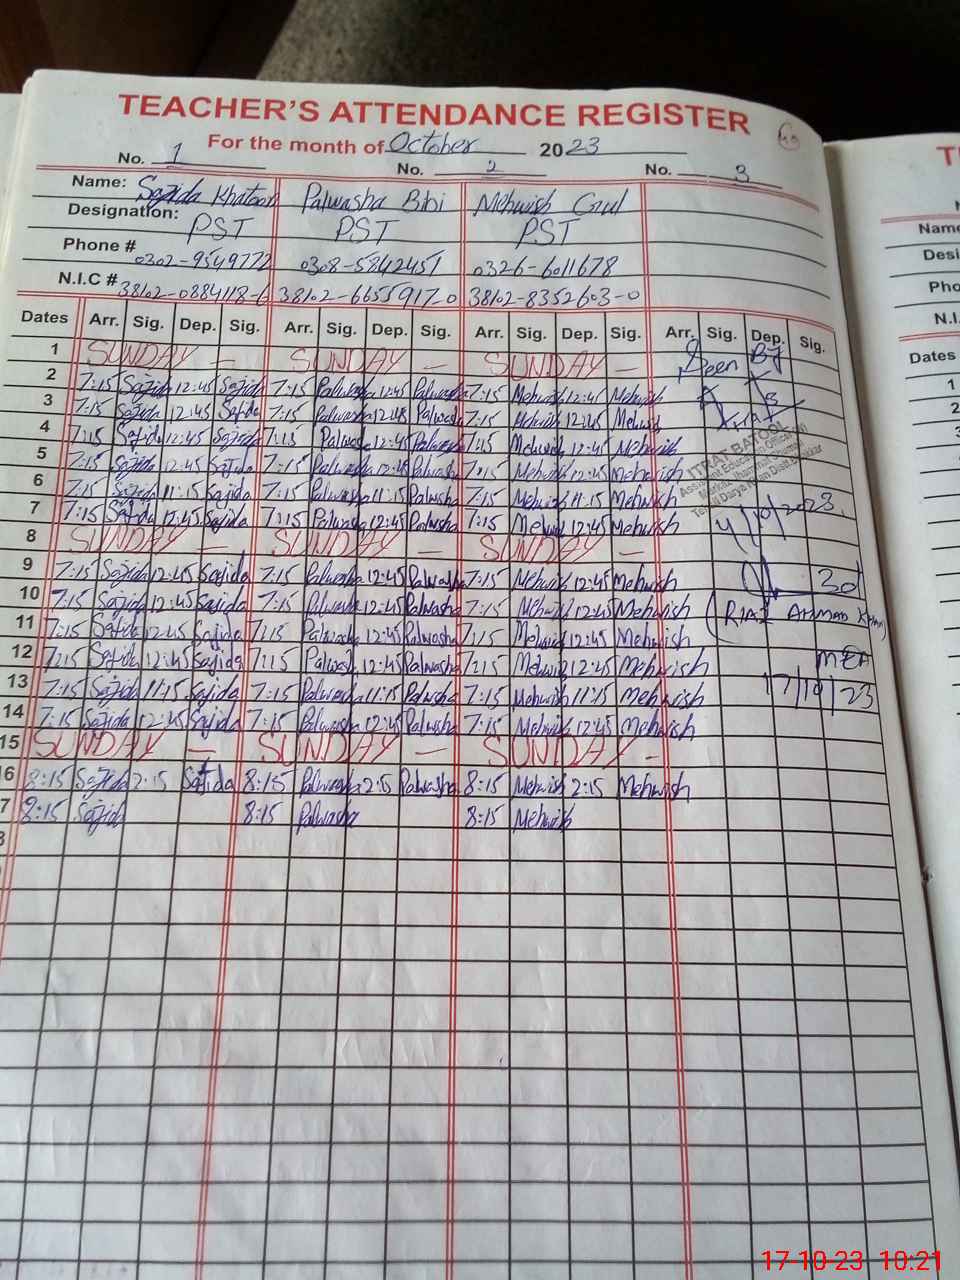 TEACHER'S ATTENDANCE REGISTER
For the month of October 2023
No. 1 No. 2 No. 3
Name: Sajida Khatoon Palwasha Bibi Mehwish Gul
Designation: PST PST PST
Phone # 0302-9549772 0308-5842451 0326-6011678
N.I.C # 38102-0884118-6 38102-6655917-0 38102-8352603-0
Dates Arr. Sig. Dep. Sig. Arr. Sig. Dep. Sig. Arr. Sig. Dep. Sig. Arr. Sig. Dep. Sig.
1 SUNDAY — SUNDAY — SUNDAY — Seen By
2 7:15 Sajida 12:45 Sajida 7:15 Palwasha 12:45 Palwasha 7:15 Mehwish 12:45 Mehwish
3 7:15 Sajida 12:45 Sajida 7:15 Palwasha 12:45 Palwasha 7:15 Mehwish 12:45 Mehwish
4 7:15 Sajida 12:45 Sajida 7:15 Palwasha 12:45 Palwasha 7:15 Mehwish 12:45 Mehwish
5 7:15 Sajida 12:45 Sajida 7:15 Palwasha 12:45 Palwasha 7:15 Mehwish 12:45 Mehwish
6 7:15 Sajida 11:15 Sajida 7:15 Palwasha 11:15 Palwasha 7:15 Mehwish 11:15 Mehwish
7 7:15 Sajida 12:45 Sajida 7:15 Palwasha 12:45 Palwasha 7:15 Mehwish 12:45 Mehwish
ITRAT BATOOL
Assistant Education Officer
Markaz
Tehsil Darya Khan Distt. Bhakkar
4/10/2023
8 SUNDAY — SUNDAY — SUNDAY —
9 7:15 Sajida 12:45 Sajida 7:15 Palwasha 12:45 Palwasha 7:15 Mehwish 12:45 Mehwish
10 7:15 Sajida 12:45 Sajida 7:15 Palwasha 12:45 Palwasha 7:15 Mehwish 12:45 Mehwish
11 7:15 Sajida 12:45 Sajida 7:15 Palwasha 12:45 Palwasha 7:15 Mehwish 12:45 Mehwish
(RIAZ AHMAD KHAN)
12 7:15 Sajida 12:45 Sajida 7:15 Palwasha 12:45 Palwasha 7:15 Mehwish 12:45 Mehwish
MEA
13 7:15 Sajida 11:15 Sajida 7:15 Palwasha 11:15 Palwasha 7:15 Mehwish 11:15 Mehwish
17/10/23
14 7:15 Sajida 12:45 Sajida 7:15 Palwasha 12:45 Palwasha 7:15 Mehwish 12:45 Mehwish
15 SUNDAY — SUNDAY — SUNDAY -
6 8:15 Sajida 2:15 Sajida 8:15 Palwasha 2:15 Palwasha 8:15 Mehwish 2:15 Mehwish
7 8:15 Sajida 8:15 Palwasha 8:15 Mehwish
Name
Desi
Pho
N.I.
Dates
1
2
17-10-23 10:21